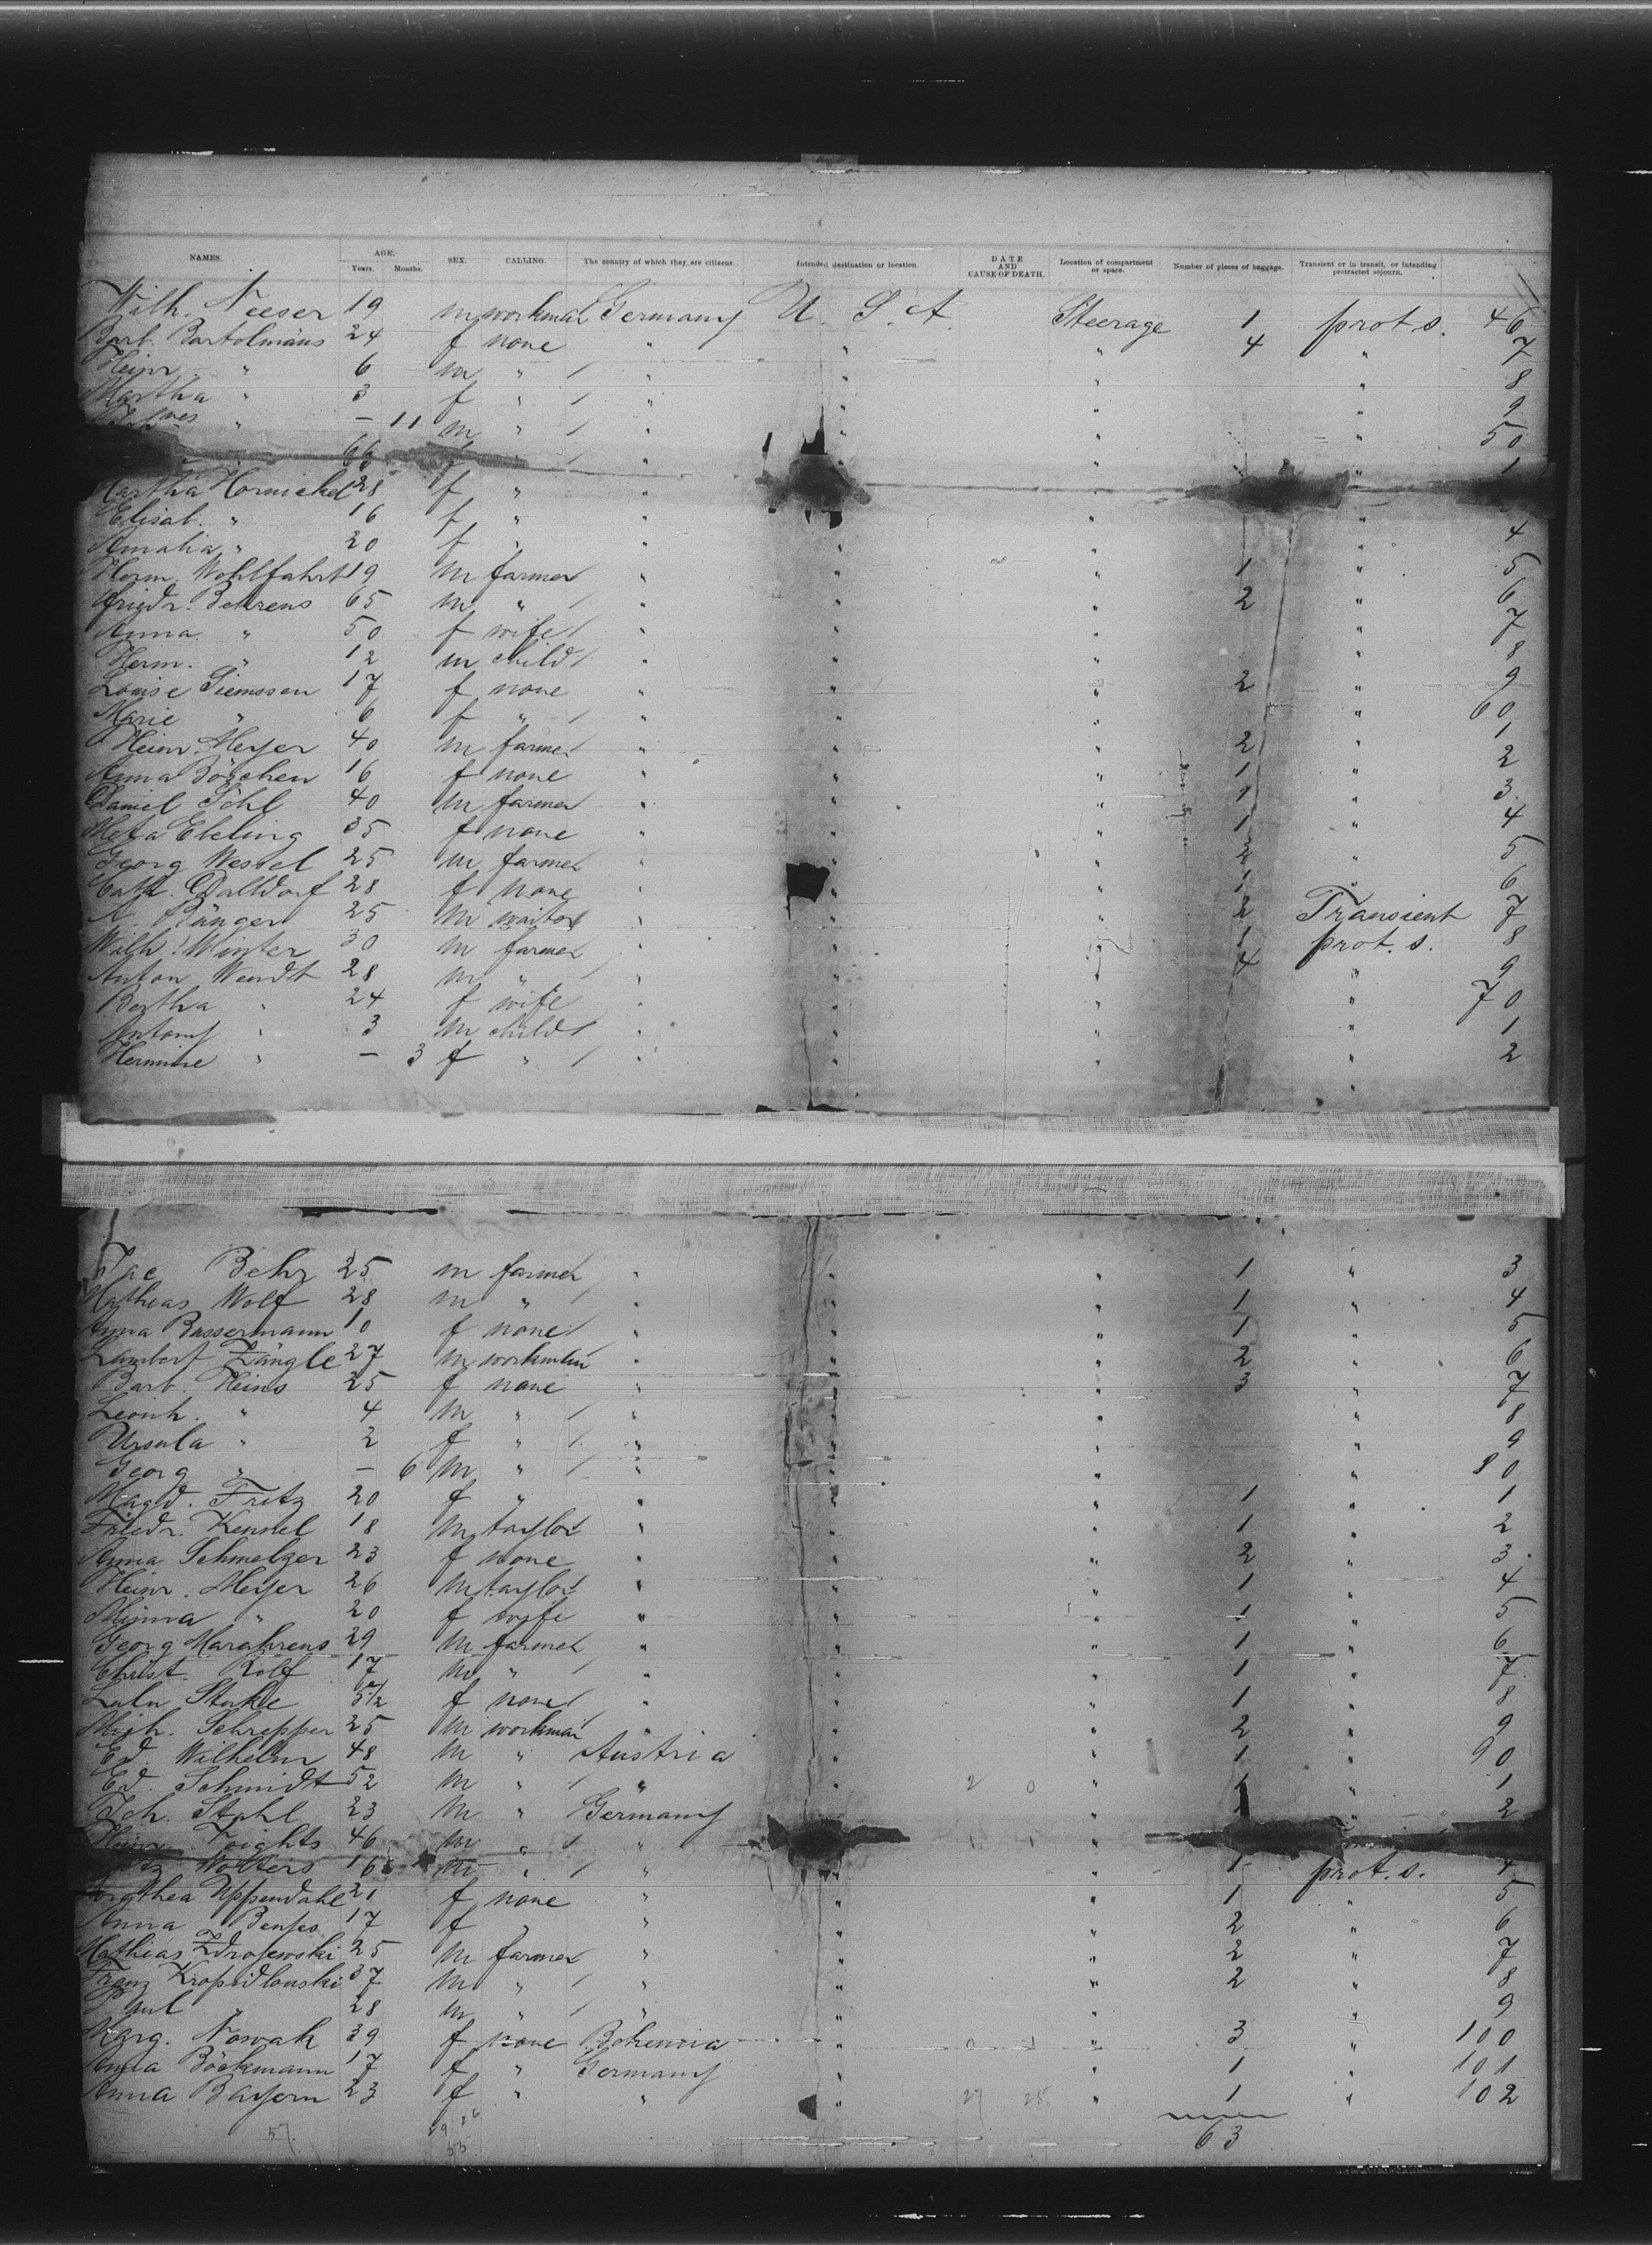 NAMES. AGE. Years. Months. SEX. CALLING. The country of which they are citizens. Intended destination or location. DATE AND CAUSE OF DEATH. Location of compartment or space. Number of pieces of baggage. Transient or in transit, or intending protracted sojourn.
Wilh. Neeser 19 m workman Germany U. S. A. Steerage 1 prot. s. 46
Barb. Bartolmäus 24 f none " " " 4 " 7
Heinr. " 6 m " / " " " " 8
Martha " 3 f " / " " " " 9
" — 11 m " / " " " " 50
66 / " " " 1
Martha Hornickel 28 f " " "
Elisab. " 16 f " " " " "
Amalia " 20 f " " " " " 4
Herm. Wohlfahrt 19 m farmer " " " 1 " 5
Friedr. Behrens 65 m " / " " " 2 " 6
Anna " 50 f wife / " " " " 7
Herm. " 12 m child / " " " " 8
Louise Siemssen 17 f none " " " 2 " 9
Marie " 6 f " / " " " " 60
Heinr. Meyer 40 m farmer " " " 2 " 1
Anna Böschen 16 f none " " " 1 " 2
Daniel Söhl 40 m farmer " " " 1 " 3
Meta Ebeling 35 f none " " " 1 " 4
Georg Wessel 25 m farmer " " " 2 " 5
Cath. Dalldorf 28 f none " " 1 " 6
A. Bünger 25 m waiter " " " 2 Transient 7
Wilh. Winter 30 m farmer " " " 1 prot. s. 8
Anton Wendt 28 m " / " " " 4 " 9
Bertha " 24 f wife / " " " " 70
Antony " 3 m child / " " " " 1
Hermine " — 3 f " / " " " " 2
Jac Behr 25 m farmer / " " " 1 " 3
Mathias Wolf 28 m " / " " " 1 " 4
Anna Bassermann 10 f none / " " " 1 " 5
Lambert Zängle 27 m workman " " " 2 " 6
Barb. Heins 25 f none " " " 3 " 7
Leonh. " 4 m " / " " " " 8
Ursula " 2 f " / " " " " 9
Georg " — 6 m " / " " " " 80
Magd. Fritz 20 f " " " " 1 " 1
Friedr. Kennel 18 m taylor " " " 1 " 2
Anna Schmelzer 23 f none " " " 2 " 3
Heinr. Meyer 26 m taylor " " " 1 " 4
Minna " 20 f wife " " " 1 " 5
Georg Marahrens 29 m farmer " " " 1 " 6
Christ. Rolf 17 m " / " " " 1 " 7
Lulu Stukle f none / " " " 1 " 8
Mich. Schrepper 25 m workman " " " 2 " 9
Ed. Wilhelm 48 m " Austria " " 1 " 90
Ed. Schmidt 52 m " / " " " 1 " 1
Joh. Stahl 23 m " Germany " " 1 " 2
Heinr. Voights 46 m " / " "
Wolters 16 m " / " " " 1 prot. s. 4
Dorothea Uppendahl 21 f none " " " 1 " 5
Anna 17 f " " " " 2 " 6
Mathias Zdrojewski 25 m farmer " " " 2 " 7
Franz Kropidlouski 37 m " / " " " 2 " 8
Paul " 28 m " / " " " " 9
Marg. Nowak 39 f none Bohemia " " 3 " 100
Anna Böckmann 17 f " Germany " " 1 " 101
Anna Bayern 23 f " " " " 1 " 102
63